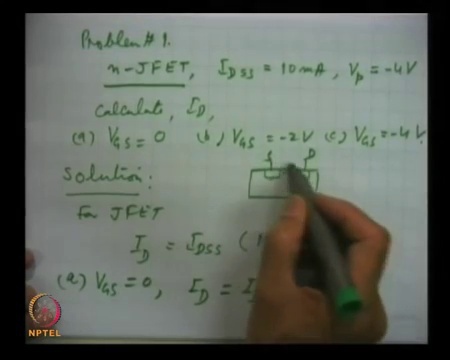 Problem # 1.
n-JFET, I_DSS = 10 mA, V_p = -4V
Calculate, I_D,
(a) V_GS = 0 (b) V_GS = -2 V (c) V_GS = -4 V.
Solution:
S D
For JFET
I_D = I_DSS (1
(a) V_GS = 0, I_D = I
NPTEL